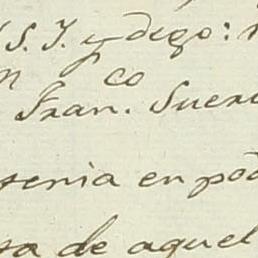 S. J. y digo:
Fran.co Suer
tenia en pod
sa de aquel